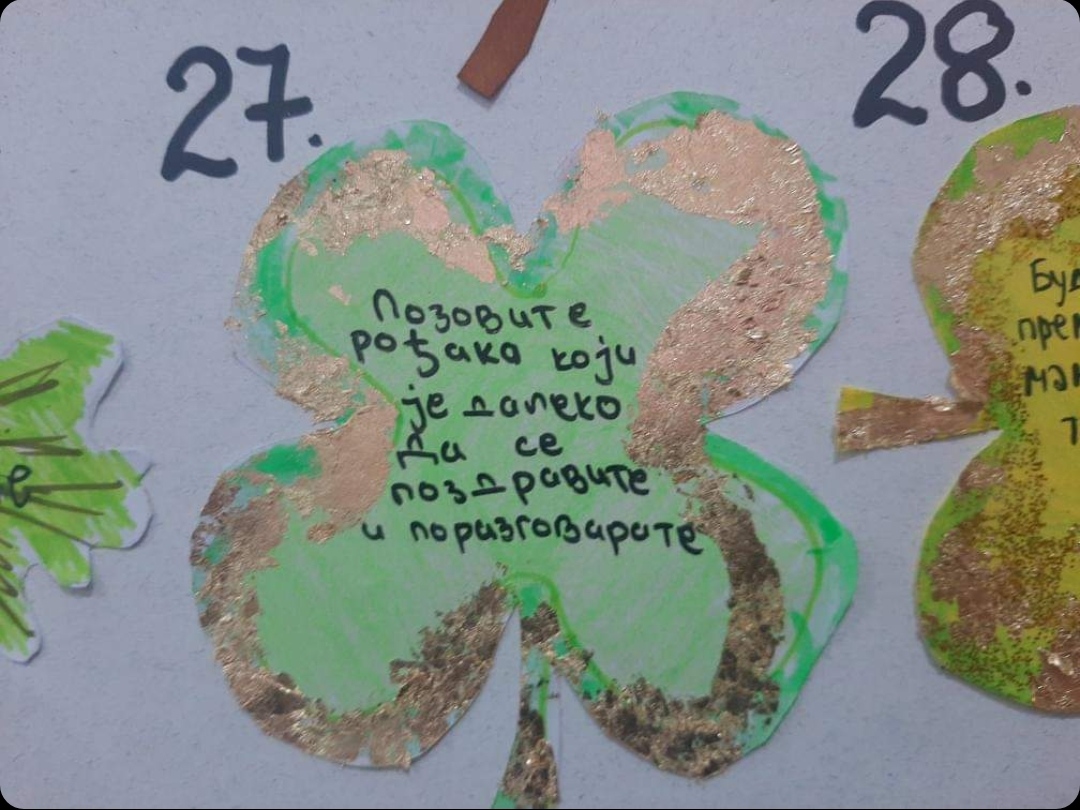 27.
Позовите
рођака који
је далеко
да се
поздравите
и поразговарате
28.